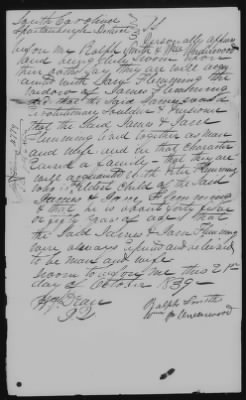 South Carolina
Spartanburgh District } SS
Personally appear
before me Ralph Smith & Wm Underwood
and being duly sworn upon
their oaths say they are well acqu
ainted with Jane Flemming the
widow of James Flemming
and that the said James was a
revolutionary soldier & pensioner
that the said James & Jane
Flemming lived together as man
and wife and in that character
raised a family - that they are
well acquainted with Peter Flemming
who is eldest child of the said
James & Jane
& that he is about forty
years of age & that
the said James & Jane Flemming
were always reputed and believed
to be man and wife
Sworn to before me this 21st
day of October 1839
H. J. Dean
Ralph Smith
Wm Underwood